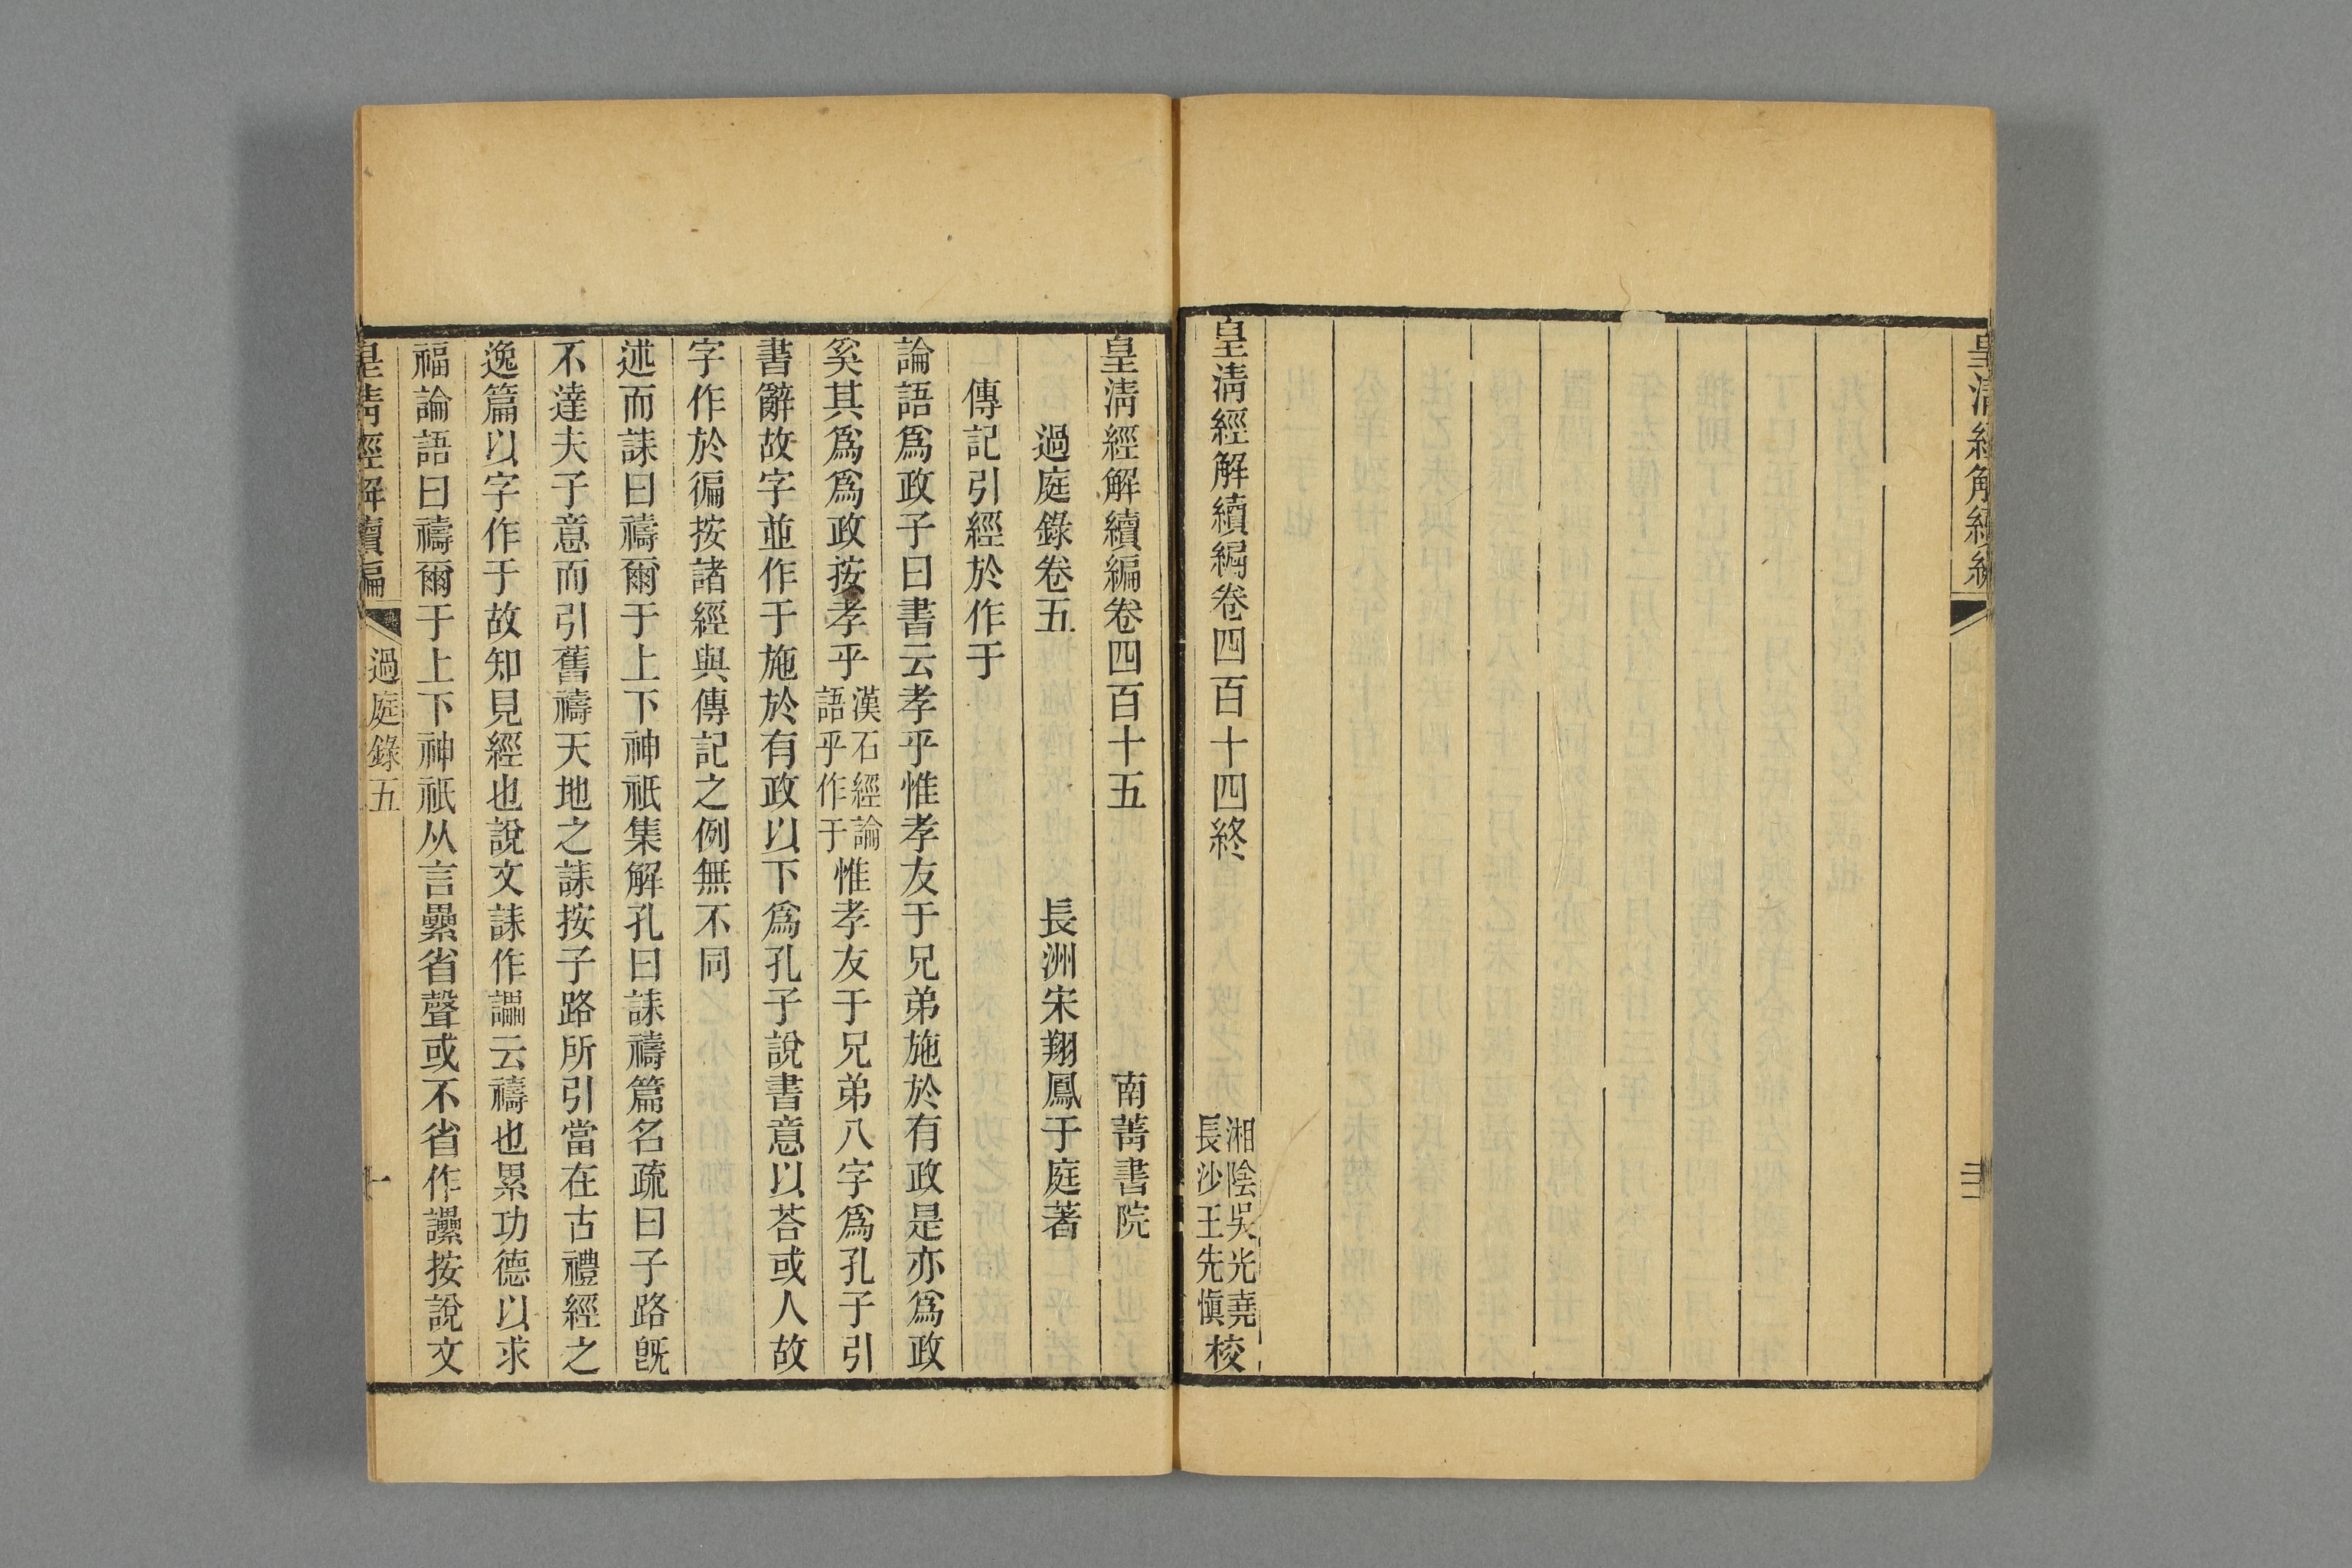 皇清經解續編
三
皇清經解續編卷四百十四終
湘陰吳光堯
長沙王先愼
校
皇清經解續編卷四百十五
南菁書院
過庭錄卷五
長洲宋翔鳳于庭著
傳記引經於作于
論語爲政子曰書云孝乎惟孝友于兄弟施於有政是亦爲政
奚其爲爲政按孝乎漢石經論語乎作于惟孝友于兄弟八字爲孔子引
書辭故字並作于施於有政以下爲孔子說書意以荅或人故
字作於徧按諸經與傳記之例無不同
述而誄曰禱爾于上下神祇集解孔曰誄禱篇名疏曰子路旣
不達夫子意而引舊禱天地之誄按子路所引當在古禮經之
逸篇以字作于故知見經也說文誄作讄云禱也累功德以求
福論語曰禱爾于上下神祇从言纍省聲或不省作讄按說文
皇清經解續編
過庭錄五
一